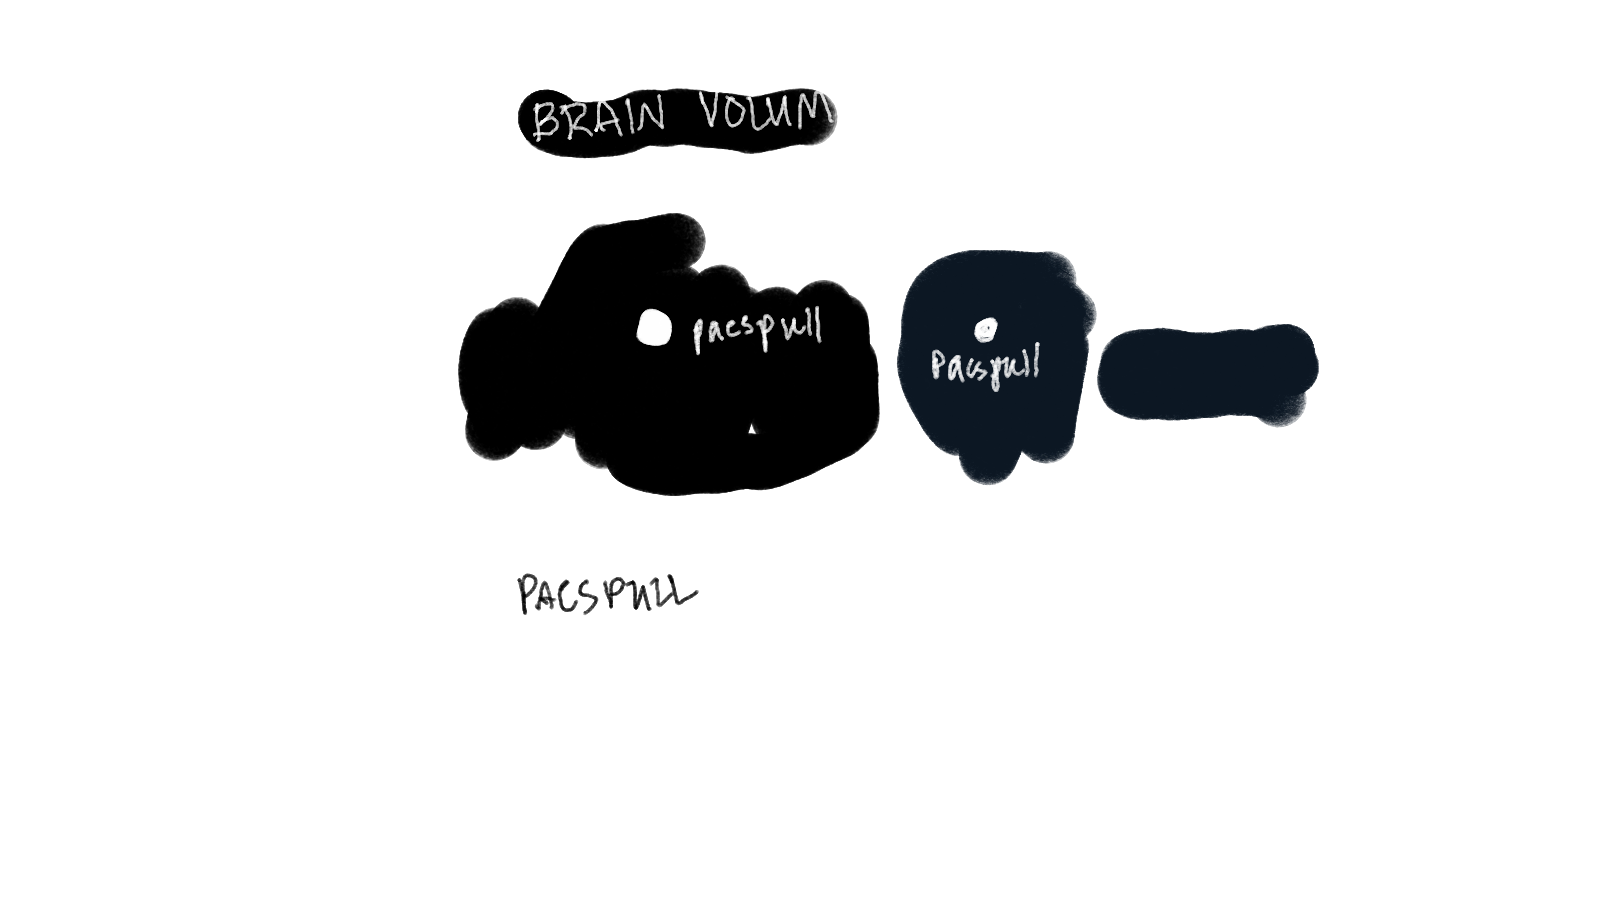 BRAIN VOLUM
pacspull
Pacspull
PACSPULL